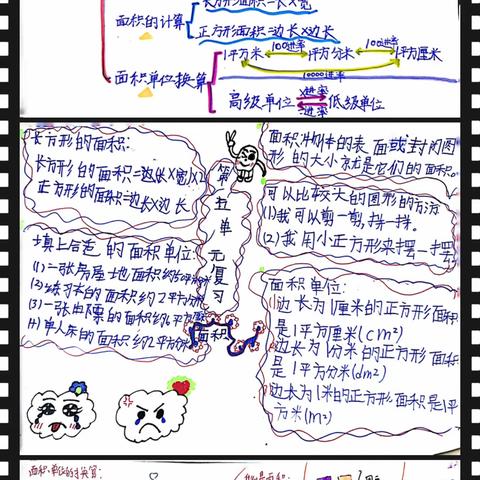 长方形面积=长×宽
面积的计算
正方形面积=边长×边长
1平方米 100进率 1平方分米 100进率 1平方厘米
10000进率
面积单位换算
高级单位 ×进率 低级单位
÷进率
长方形的面积:
长方形的面积=(边长×宽)×2
正方形的面积=边长×边长
第五单元复习
面积
填上合适的面积单位:
(1)一张
(2)练习本的面积约2平方分米
(3)一张
(4)单人床的面积约2平方米
面积:物体的表面或封闭图
形的大小就是它们的面积。
可以比较大的图形的方法
(1)我可以剪一剪,拼一拼。
(2)我用小正方形来摆一摆
面积单位:
边长为1厘米的正方形面积
是1平方厘米(cm²)
边长为1分米的正方形面积
是1平方分米(dm²)
边长为1米的正方形面积是1平
方米(m²)
面积单位的换算: